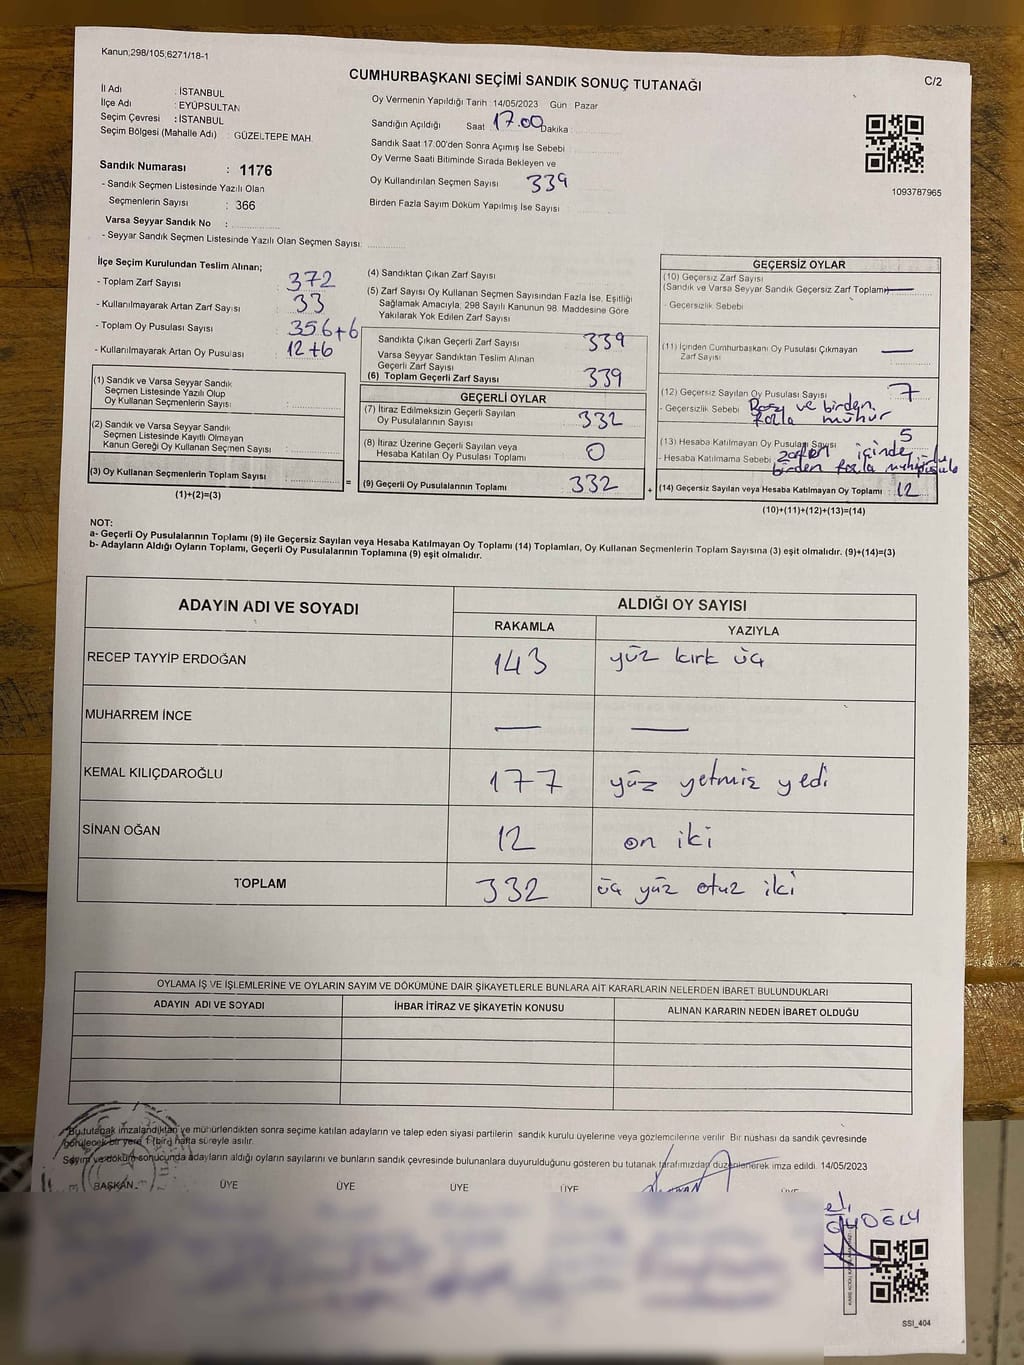 Kanun;298/105;6271/18-1
CUMHURBAŞKANI SEÇİMİ SANDIK SONUÇ TUTANAĞI
C/2
İl Adı : İSTANBUL
İlçe Adı : EYÜPSULTAN
Seçim Çevresi : İSTANBUL
Seçim Bölgesi (Mahalle Adı) : GÜZELTEPE MAH.
Sandık Numarası : 1176
- Sandık Seçmen Listesinde Yazılı Olan
Seçmenlerin Sayısı : 366
Varsa Seyyar Sandık No :
- Seyyar Sandık Seçmen Listesinde Yazılı Olan Seçmen Sayısı:
Oy Vermenin Yapıldığı Tarih : 14/05/2023 Gün : Pazar
Sandığın Açıldığı Saat 17.00 Dakika :
Sandık Saat 17:00'den Sonra Açımış İse Sebebi :
Oy Verme Saati Bitiminde Sırada Bekleyen ve
Oy Kullandırılan Seçmen Sayısı 339
Birden Fazla Sayım Döküm Yapılmış İse Sayısı
1093787965
İlçe Seçim Kurulundan Teslim Alınan;
- Toplam Zarf Sayısı : 372
- Kullanılmayarak Artan Zarf Sayısı : 33
- Toplam Oy Pusulası Sayısı : 356+6
- Kullanılmayarak Artan Oy Pusulası : 12+6
(1) Sandık ve Varsa Seyyar Sandık
Seçmen Listesinde Yazılı Olup
Oy Kullanan Seçmenlerin Sayısı :
(2) Sandık ve Varsa Seyyar Sandık
Seçmen Listesinde Kayıtlı Olmayan
Kanun Gereği Oy Kullanan Seçmen Sayısı :
(3) Oy Kullanan Seçmenlerin Toplam Sayısı :
(1)+(2)=(3)
=
(4) Sandıktan Çıkan Zarf Sayısı
(5) Zarf Sayısı Oy Kullanan Seçmen Sayısından Fazla İse, Eşitliği
Sağlamak Amacıyla, 298 Sayılı Kanunun 98. Maddesine Göre
Yakılarak Yok Edilen Zarf Sayısı
Sandıkta Çıkan Geçerli Zarf Sayısı 339
Varsa Seyyar Sandıktan Teslim Alınan
Geçerli Zarf Sayısı
(6) Toplam Geçerli Zarf Sayısı 339
GEÇERLİ OYLAR
(7) İtiraz Edilmeksizin Geçerli Sayılan
Oy Pusulalarının Sayısı 332
(8) İtiraz Üzerine Geçerli Sayılan veya
Hesaba Katılan Oy Pusulası Toplamı 0
(9) Geçerli Oy Pusulalarının Toplamı 332
+
GEÇERSİZ OYLAR
(10) Geçersiz Zarf Sayısı
(Sandık ve Varsa Seyyar Sandık Geçersiz Zarf Toplamı) —
- Geçersizlik Sebebi
(11) İçinden Cumhurbaşkanı Oy Pusulası Çıkmayan
Zarf Sayısı —
(12) Geçersiz Sayılan Oy Pusulası Sayısı 7
- Geçersizlik Sebebi Boş ve birden
fazla mühür
(13) Hesaba Katılmayan Oy Pusulası Sayısı 5
- Hesaba Katılmama Sebebi içinde
birden fazla
(14) Geçersiz Sayılan veya Hesaba Katılmayan Oy Toplamı : 12
(10)+(11)+(12)+(13)=(14)
NOT:
a- Geçerli Oy Pusulalarının Toplamı (9) ile Geçersiz Sayılan veya Hesaba Katılmayan Oy Toplamı (14) Toplamları, Oy Kullanan Seçmenlerin Toplam Sayısına (3) eşit olmalıdır. (9)+(14)=(3)
b- Adayların Aldığı Oyların Toplamı, Geçerli Oy Pusulalarının Toplamına (9) eşit olmalıdır.
ADAYIN ADI VE SOYADI
ALDIĞI OY SAYISI
RAKAMLA YAZIYLA
RECEP TAYYİP ERDOĞAN 143 yüz kırk üç
MUHARREM İNCE — —
KEMAL KILIÇDAROĞLU 177 yüz yetmiş yedi
SİNAN OĞAN 12 on iki
TOPLAM 332 üç yüz otuz iki
OYLAMA İŞ VE İŞLEMLERİNE VE OYLARIN SAYIM VE DÖKÜMÜNE DAİR ŞİKAYETLERLE BUNLARA AİT KARARLARIN NELERDEN İBARET BULUNDUKLARI
ADAYIN ADI VE SOYADI İHBAR İTİRAZ VE ŞİKAYETİN KONUSU ALINAN KARARIN NEDEN İBARET OLDUĞU
Bu tutanak imzalandıktan ve mühürlendikten sonra seçime katılan adayların ve talep eden siyasi partilerin sandık kurulu üyelerine veya gözlemcilerine verilir. Bir nüshası da sandık çevresinde
görülecek bir yere 1 (bir) hafta süreyle asılır.
Sayım ve döküm sonucunda adayların aldığı oyların sayılarını ve bunların sandık çevresinde bulunanlara duyurulduğunu gösteren bu tutanak tarafımızdan düzenlenerek imza edildi. 14/05/2023
BAŞKAN ÜYE ÜYE ÜYE ÜYE ÜYE
SSI_404